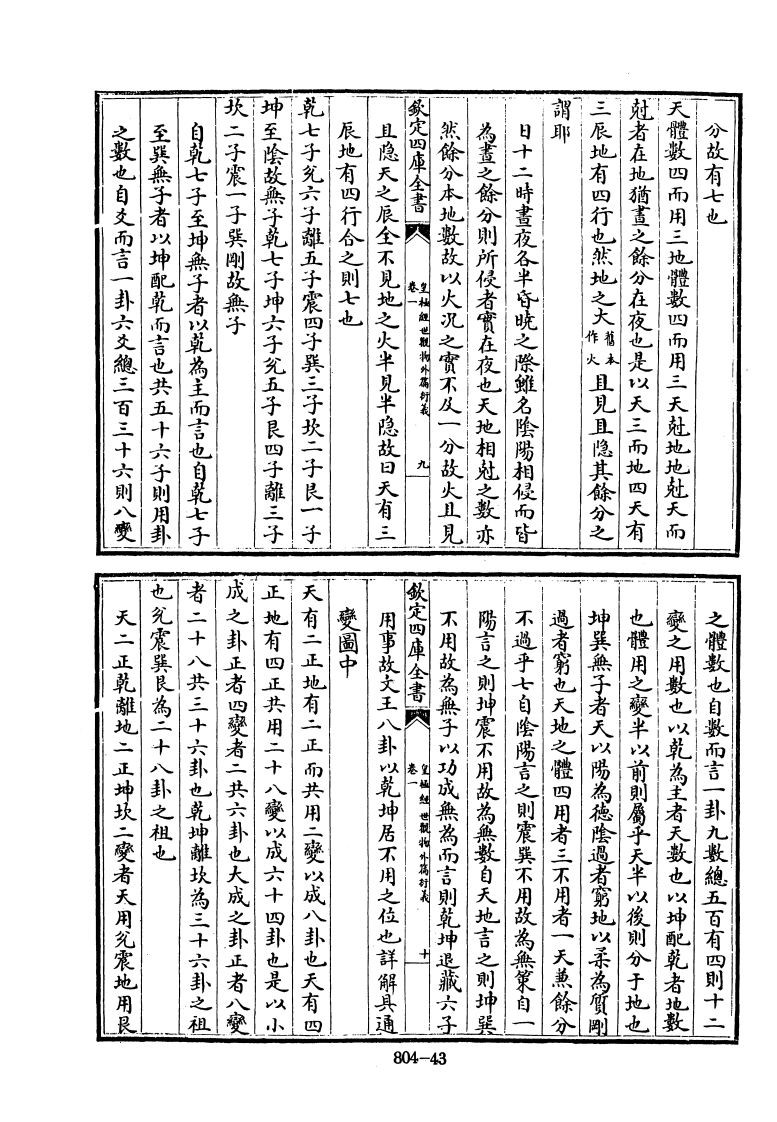 分故有七也
天體數四而用三地體數四而用三天尅地地尅天而
尅者在地猶晝之餘分在夜也是以天三而地四天有
三辰地有四行也然地之大舊本作火且見且隐其餘分之
謂耶
日十二時晝夜各半昏曉之際雖名陰陽相侵而皆
為晝之餘分則所侵者實在夜也天地相尅之數亦
然餘分本地數故以火况之實不及一分故火且見
欽定四庫全書
皇極經世觀物外篇衍義
卷一
九
且隐天之辰全不見地之火半見半隐故曰天有三
辰地有四行合之則七也
乾七子兊六子離五子震四子巽三子坎二子艮一子
坤至陰故無子乾七子坤六子兊五子艮四子離三子
坎二子震一子巽剛故無子
自乾七子至坤無子者以乾為主而言也自乾七子
至巽無子者以坤配乾而言也共五十六子則用卦
之數也自爻而言一卦六爻總三百三十六則八變
之體數也自數而言一卦九數總五百有四則十二
變之用數也以乾為主者天數也以坤配乾者地數
也體用之變半以前則屬乎天半以後則分于地也
坤巽無子者天以陽為德陰過者窮地以柔為質剛
過者窮也天地之體四用者三不用者一天兼餘分
不過乎七自陰陽言之則震巽不用故為無策自一
陽言之則坤震不用故為無數自天地言之則坤巽
不用故為無子以功成無為而言則乾坤退藏六子
欽定四庫全書
皇極經世觀物外篇衍義
卷一
十
用事故文王八卦以乾坤居不用之位也詳解具通
變圖中
天有二正地有二正而共用二變以成八卦也天有四
正地有四正共用二十八變以成六十四卦也是以小
成之卦正者四變者二共六卦也大成之卦正者八變
者二十八共三十六卦也乾坤離坎為三十六卦之祖
也兊震巽艮為二十八卦之祖也
天二正乾離地二正坤坎二變者天用兊震地用艮